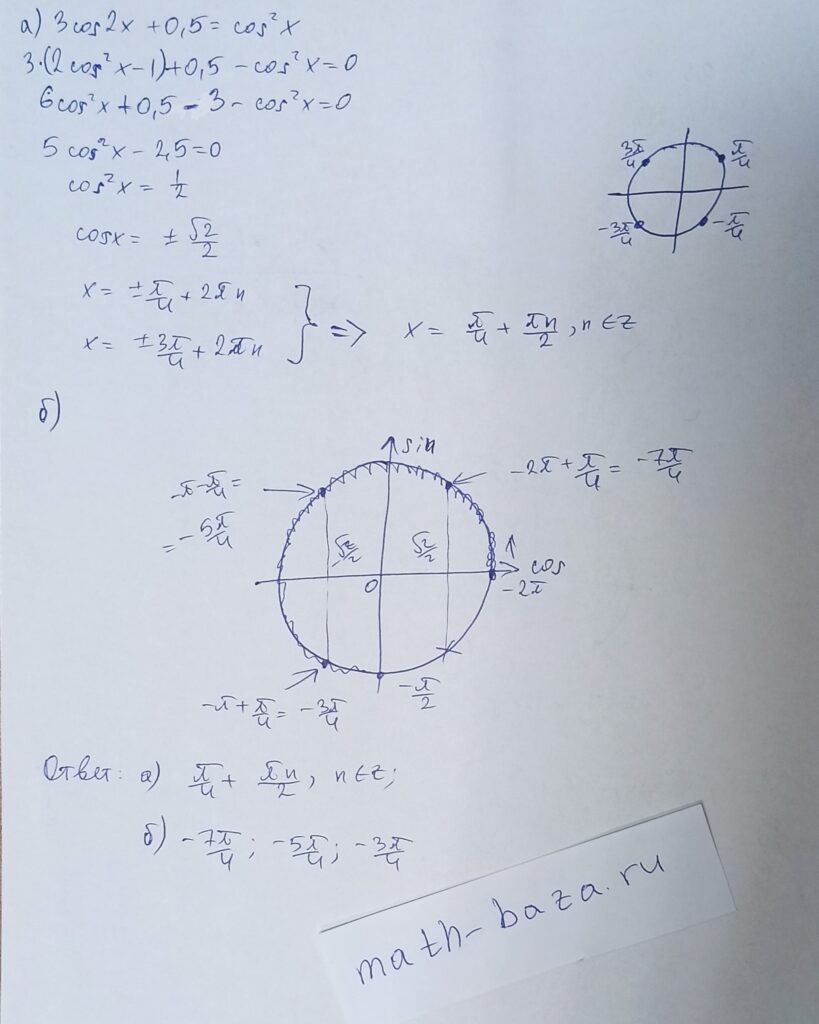 а) 3cos2x + 0,5 = cos²x
3·(2cos²x-1)+0,5 - cos²x=0
6cos²x+0,5 - 3 - cos²x=0
5cos²x - 2,5=0
cos²x = 1/2
cosx = ± √2/2
x = ± π/4 + 2πn
x = ± 3π/4 + 2πn
} => x = π/4 + πn/2, n∈z
3π/4
π/4
-3π/4
-π/4
б)
sin
-π-π/4=
=-5π/4
-2π+π/4= -7π/4
-√2/2
√2/2
0
cos
-2π
-π/2
-π+π/4= -3π/4
Ответ: а) π/4 + πn/2, n∈z;
б) -7π/4; -5π/4; -3π/4
math-baza.ru